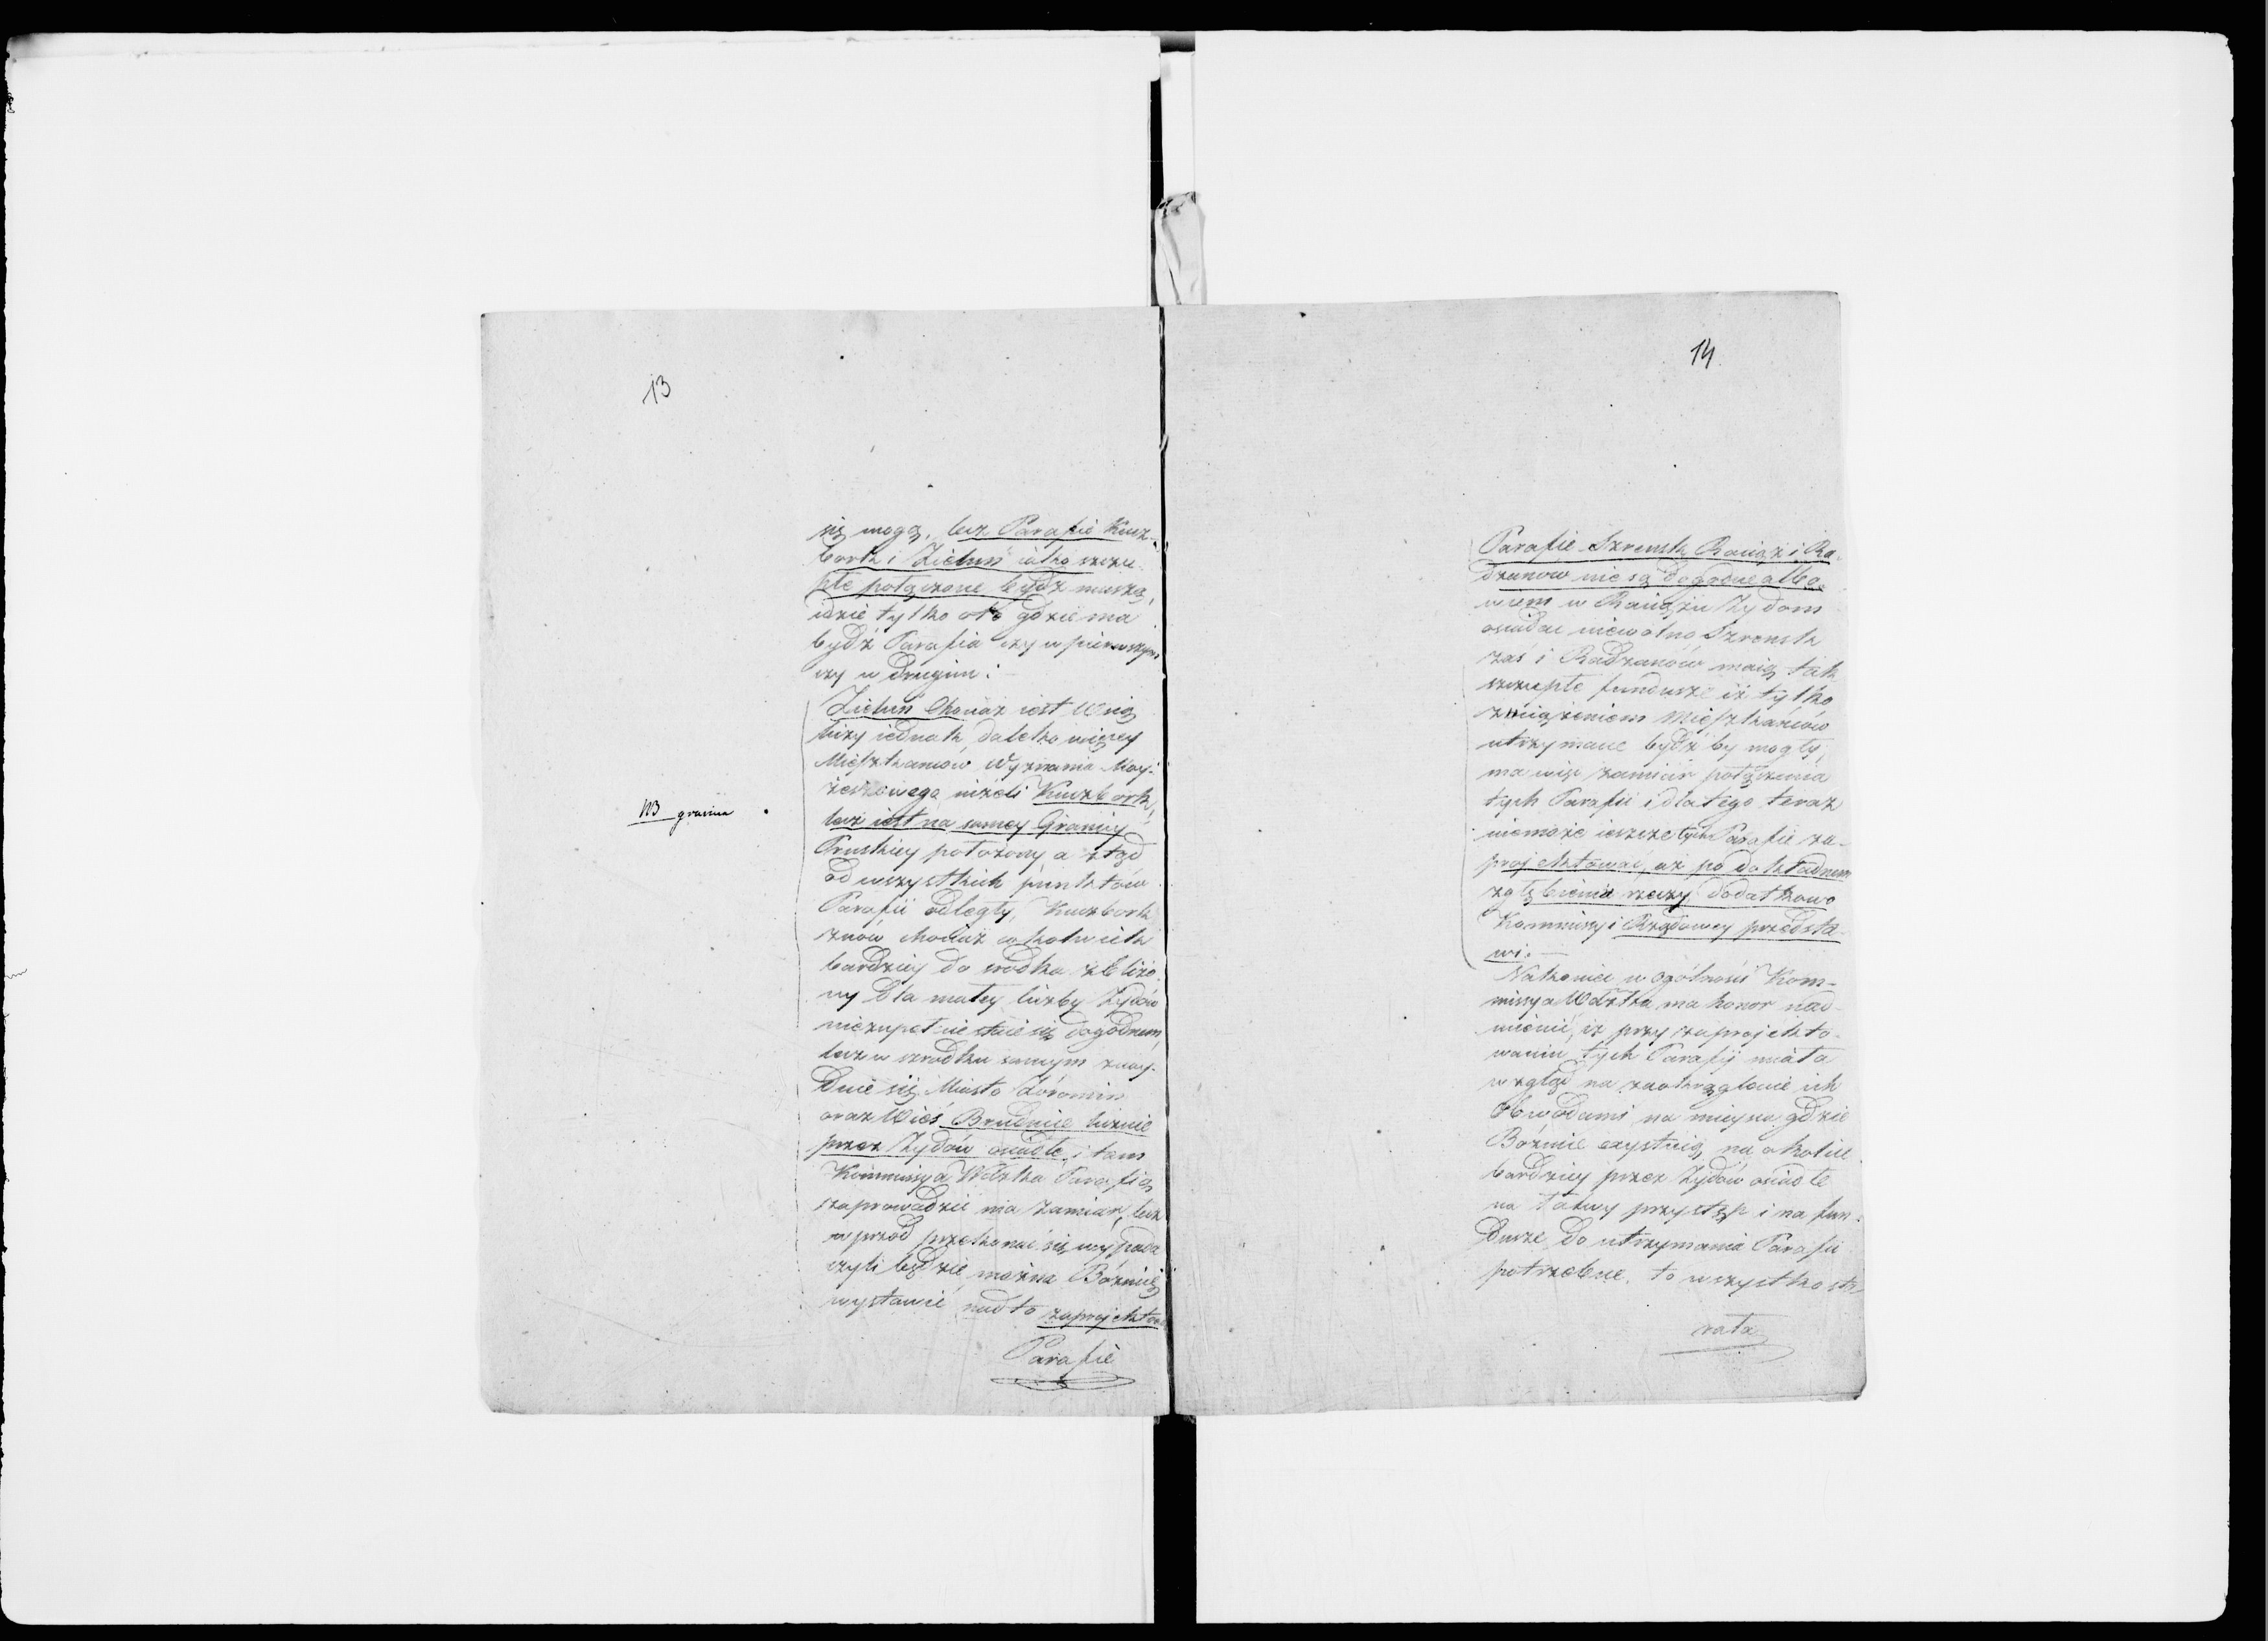 13
się mogą, lecz Parafie Kucz-
bork i Zieluń iako szczu-
płe połączone bydź muszą,
idzie tylko o to gdzie ma
bydź Parafia czy w pierwszym
czy w drugim:
Zieluń Chociaż iest Wsią
liczy iednak daleko więcey
Mieszkańców Wyznania Moy-
żeszowego niżeli Kuczbork,
lecz iest na samey Granicy
Pruskiey położony a ztąd
od wszystkich punktów
Parafii odległy, Kuczbork
znow chociaż iakolwiek
bardziey do srodka zbliżo-
ny dla małey liczby Żydów
niezupełnie staie się dogodnem,
lecz w szrodku samym znay-
duie się Miasto Żóromin
oraz Wieś Brudnice licznie
przez Żydów osiadłe, i tam
Kommissya Wdzka Parafią
zaprowadzić ma zamiar, lecz
wprzód przekonać się wypada
czyli będzie można Bóżnicę
wystawić nadto zaprojekto
Parafie
NB granica
14
Parafie Szrensk Raciąż i Ra-
dzanow nie są dogodne albo-
wiem w Raciążu Żydom
osiadać niewolno Szrensk
zaś i Radzanów maią tak
szczupłe fundusze iż tylko
z uciążeniem Mieszkańców
utrzymane bydź by mogły,
ma więc zamiar połączenia
tych Parafii i dlatego teraz
niemoże ieszcze tych Parafie za-
projektować, aż po dokładnem
zgłębieniu rzeczy dodatkowo
Kommissyi Rządowey przedsta-
wi.
Nakoniec w ogólności Kom-
missya Wdzka ma honor nad-
mienić, iż przy zaprojekto-
waniu tych Parafij miała
wzgląd na zaokrąglenie ich
Obwodami na mieysca gdzie
Bożnice exystuią na okolice
bardziey przez Żydów osiadłe
na łatwy przystęp i na fun-
dusze do utrzymania Parafii
potrzebne. to wszystko sta
rała